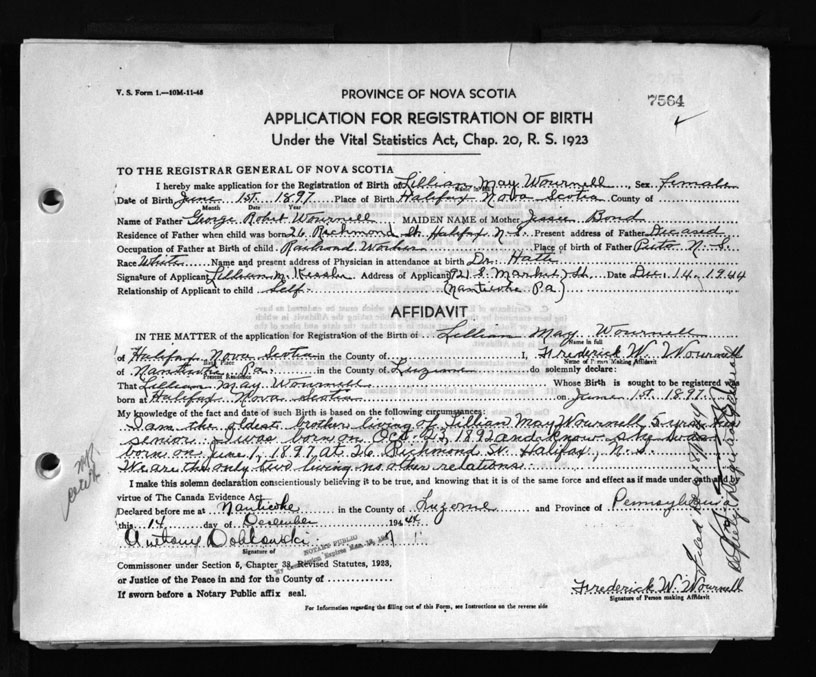 V. S. Form 1.—10M-11-43
PROVINCE OF NOVA SCOTIA
7564
APPLICATION FOR REGISTRATION OF BIRTH
Under the Vital Statistics Act, Chap. 20, R. S. 1923
TO THE REGISTRAR GENERAL OF NOVA SCOTIA
I hereby make application for the Registration of Birth of Lillian May Wournell, Sex female
Date of Birth June 1st. 1897 Place of Birth Halifax Nova Scotia County of
Month Date Year
Name of Father George Robert Wournell MAIDEN NAME of Mother Jessie Bond
Residence of Father when child was born 26 Richmond St. Halifax N.S. Present address of Father Deceased
Occupation of Father at Birth of child. Railroad Worker Place of birth of Father Pictu N.S.
Race White Name and present address of Physician in attendance at birth Dr.
Signature of Applicant Lillian M. Kessler Address of Applicant 921 S. Market St. Date Dec. 14, 1944
Relationship of Applicant to child Self (Nanticoke Pa)
AFFIDAVIT
IN THE MATTER of the application for Registration of the Birth of Lillian May Wournell
Name in full
of Halifax Nova Scotia in the County of I, Frederick W. Wournell
Name of Person Making Affidavit
of Nanticoke Pa. in the County of Luzerne do solemnly declare:
Present Residence
That Lillian May Wournell Whose Birth is sought to be registered was
born at Halifax Nova Scotia on June 1st. 1897.
My knowledge of the fact and date of such Birth is based on the following circumstances:
I am the oldest brother living of Lillian May Wournell, 5 yrs her
senior. I was born on Oct. 1892 and know she was
born on June 1, 1897 at 26 Richmond St. Halifax, N.S.
We are the only two living no other relations.
I make this solemn declaration conscientiously believing it to be true, and knowing that it is of the same force and effect as if made under oath and by
virtue of The Canada Evidence Act.
Declared before me at Nanticoke in the County of Luzerne and Province of Pennsylvania
this 14 day of December 1944
Antony Doblowski
Signature of
NOTARY PUBLIC
My Commission Expires
Commissioner under Section 5, Chapter 38, Revised Statutes, 1923,
or Justice of the Peace in and for the County of
If sworn before a Notary Public affix seal.
Frederick W. Wournell
Signature of Person making Affidavit
For Information regarding the filling out of this Form, see Instructions on the reverse side
Filed
Deputy Registrar General